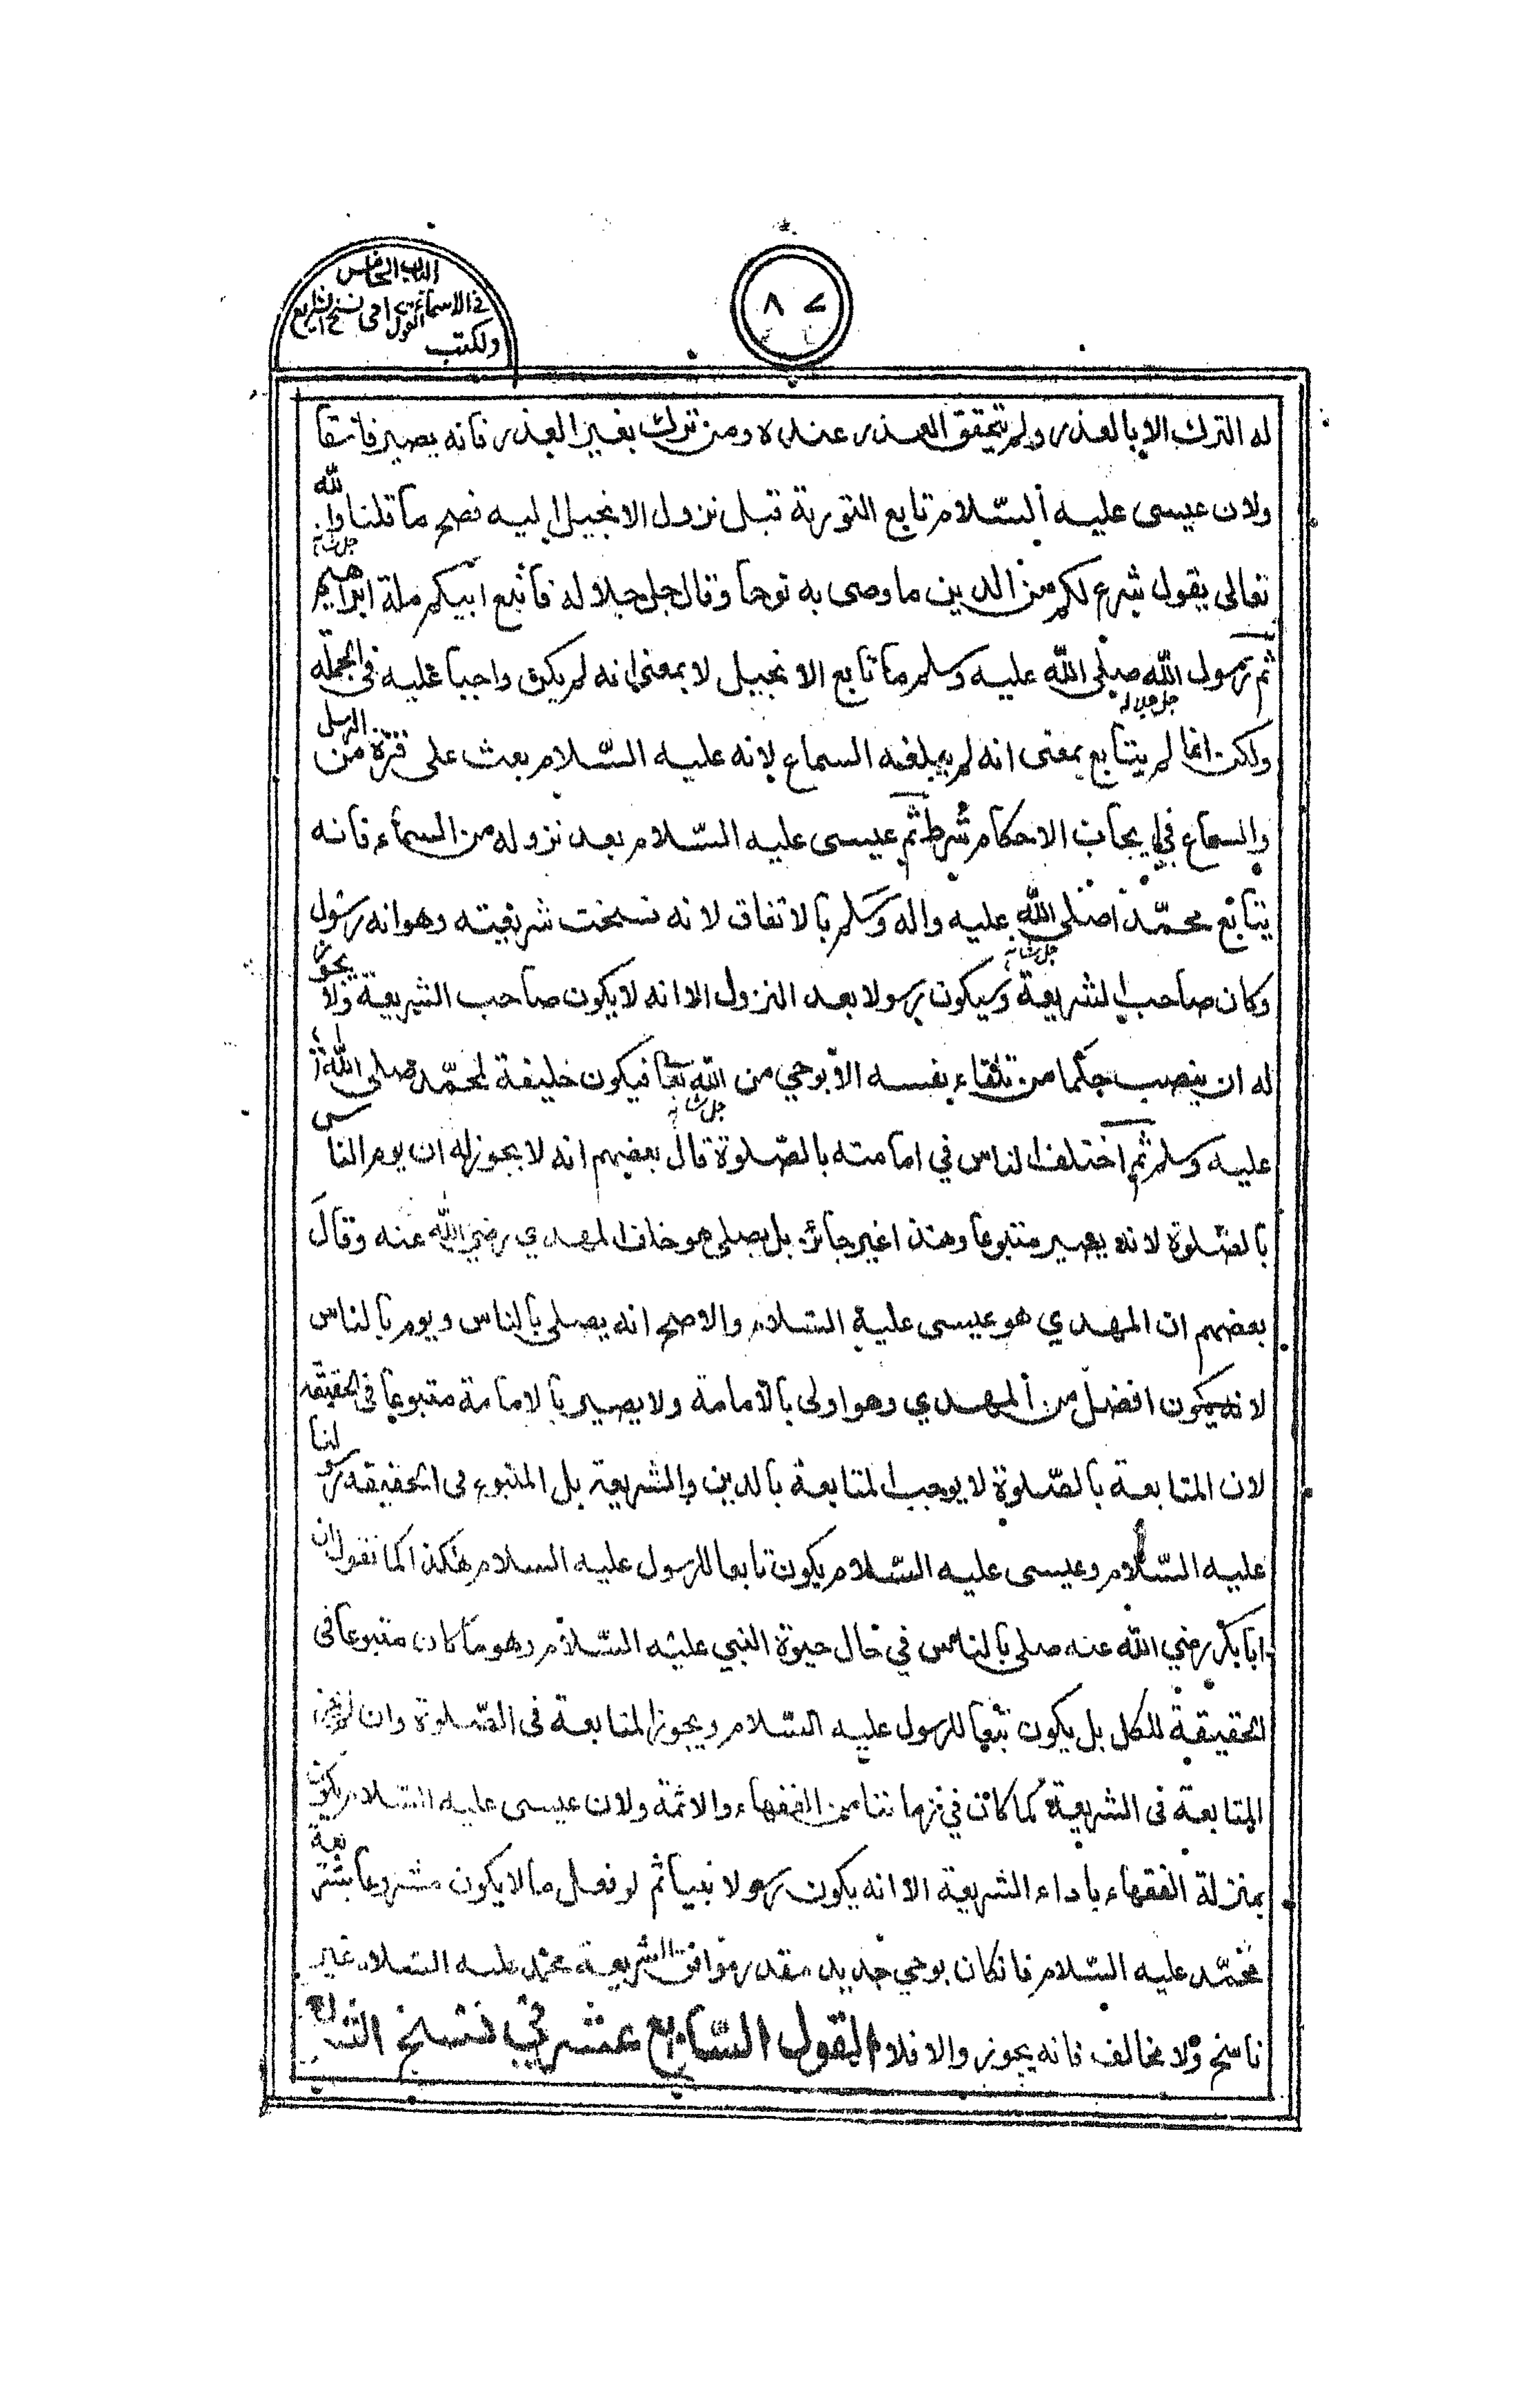 الباب الخامس
في الاسماء
القول
نسخ الشرايع
ولكتب
٨٧
له الترك الا بالعذر ولم يتحقق العذر عنده ومن ترك بغير العذر فانه يصير فاسقا
ولان عيسى عليه السّلام تابع التورية قبل نزول الانجيل اليه فصح ما قلنا والله
جل شانه
تعالى يقول شرع لكم من الدين ما وصى به نوحا وقال جل جلاله فاتبع ابيكم ملة ابراهيم
ثم رسول الله صلى الله عليه وسلم ما تابع الانجيل لا بمعنى انه لم يكن واجبا عليه في الجملة
جل جلاله
ولكن انما لم يتابع بمعنى انه لم يبلغه السماع لانه عليه السّلام بعث على فترة من الرسل
والسماع في ايجاب الاحكام شرط ثم عيسى عليه السّلام بعد نزوله من السماء فانه
يتابع محمّدا صلى الله عليه واله وسلم بالاتفاق لانه نسخت شريعته وهو انه رسول
جل شانه
وكان صاحب الشريعة وسيكون رسولا بعد النزول الا انه لا يكون صاحب الشريعة ولا يجوز
له ان ينصب حكما من تلقاء نفسه الا بوحي من الله تعا فيكون خليفة لمحمّد صلى الله
جل شانه
عليه وسلم ثم اختلف الناس في امامته بالصّلوة قال بعضهم انه لا يجوز له ان يوم الناس
بالصّلوة لانه يصير متبوعا وهذا غير جائز بل يصلي هو خلف المهدي رضي الله عنه وقال
بعضهم ان المهدي هو عيسى عليه السّلام والاصح انه يصلي بالناس ويوم بالناس
لانه يكون افضل من المهدي وهو اولى بالامامة ولا يصير بالامامة متبوعا في الحقيقه
لان المتابعة بالصّلوة لا يوجب المتابعة بالدين والشريعة بل المتبوع في الحقيقه رسولنا
عليه السّلام وعيسى عليه السّلام يكون تابعا للرسول عليه السلام هكذا كما نقول ان
ابا بكر رضي الله عنه صلى بالناس في حال حيوة النبي عليه السّلام وهو ما كان متبوعا في
الحقيقة للكل بل يكون تبعا للرسول عليه السّلام ويجوز المتابعة في الصّلوة وان لم يجز
المتابعة في الشريعة كما كان في زماننا من الفقهاء والائمة ولان عيسى عليه السّلام يكون
بمنزلة الفقهاء باداء الشريعة الا انه يكون رسولا نبيا ثم لو فعل ما لا يكون مشروعا بشريعة
محمّد عليه السّلام فانكان بوحي جديد مقدر موافق الشريعة محمّد عليه السّلام غير
ناسخ ولا مخالف فانه يجوز والا فلا القول السّابع عشر في نسخ الشرايع